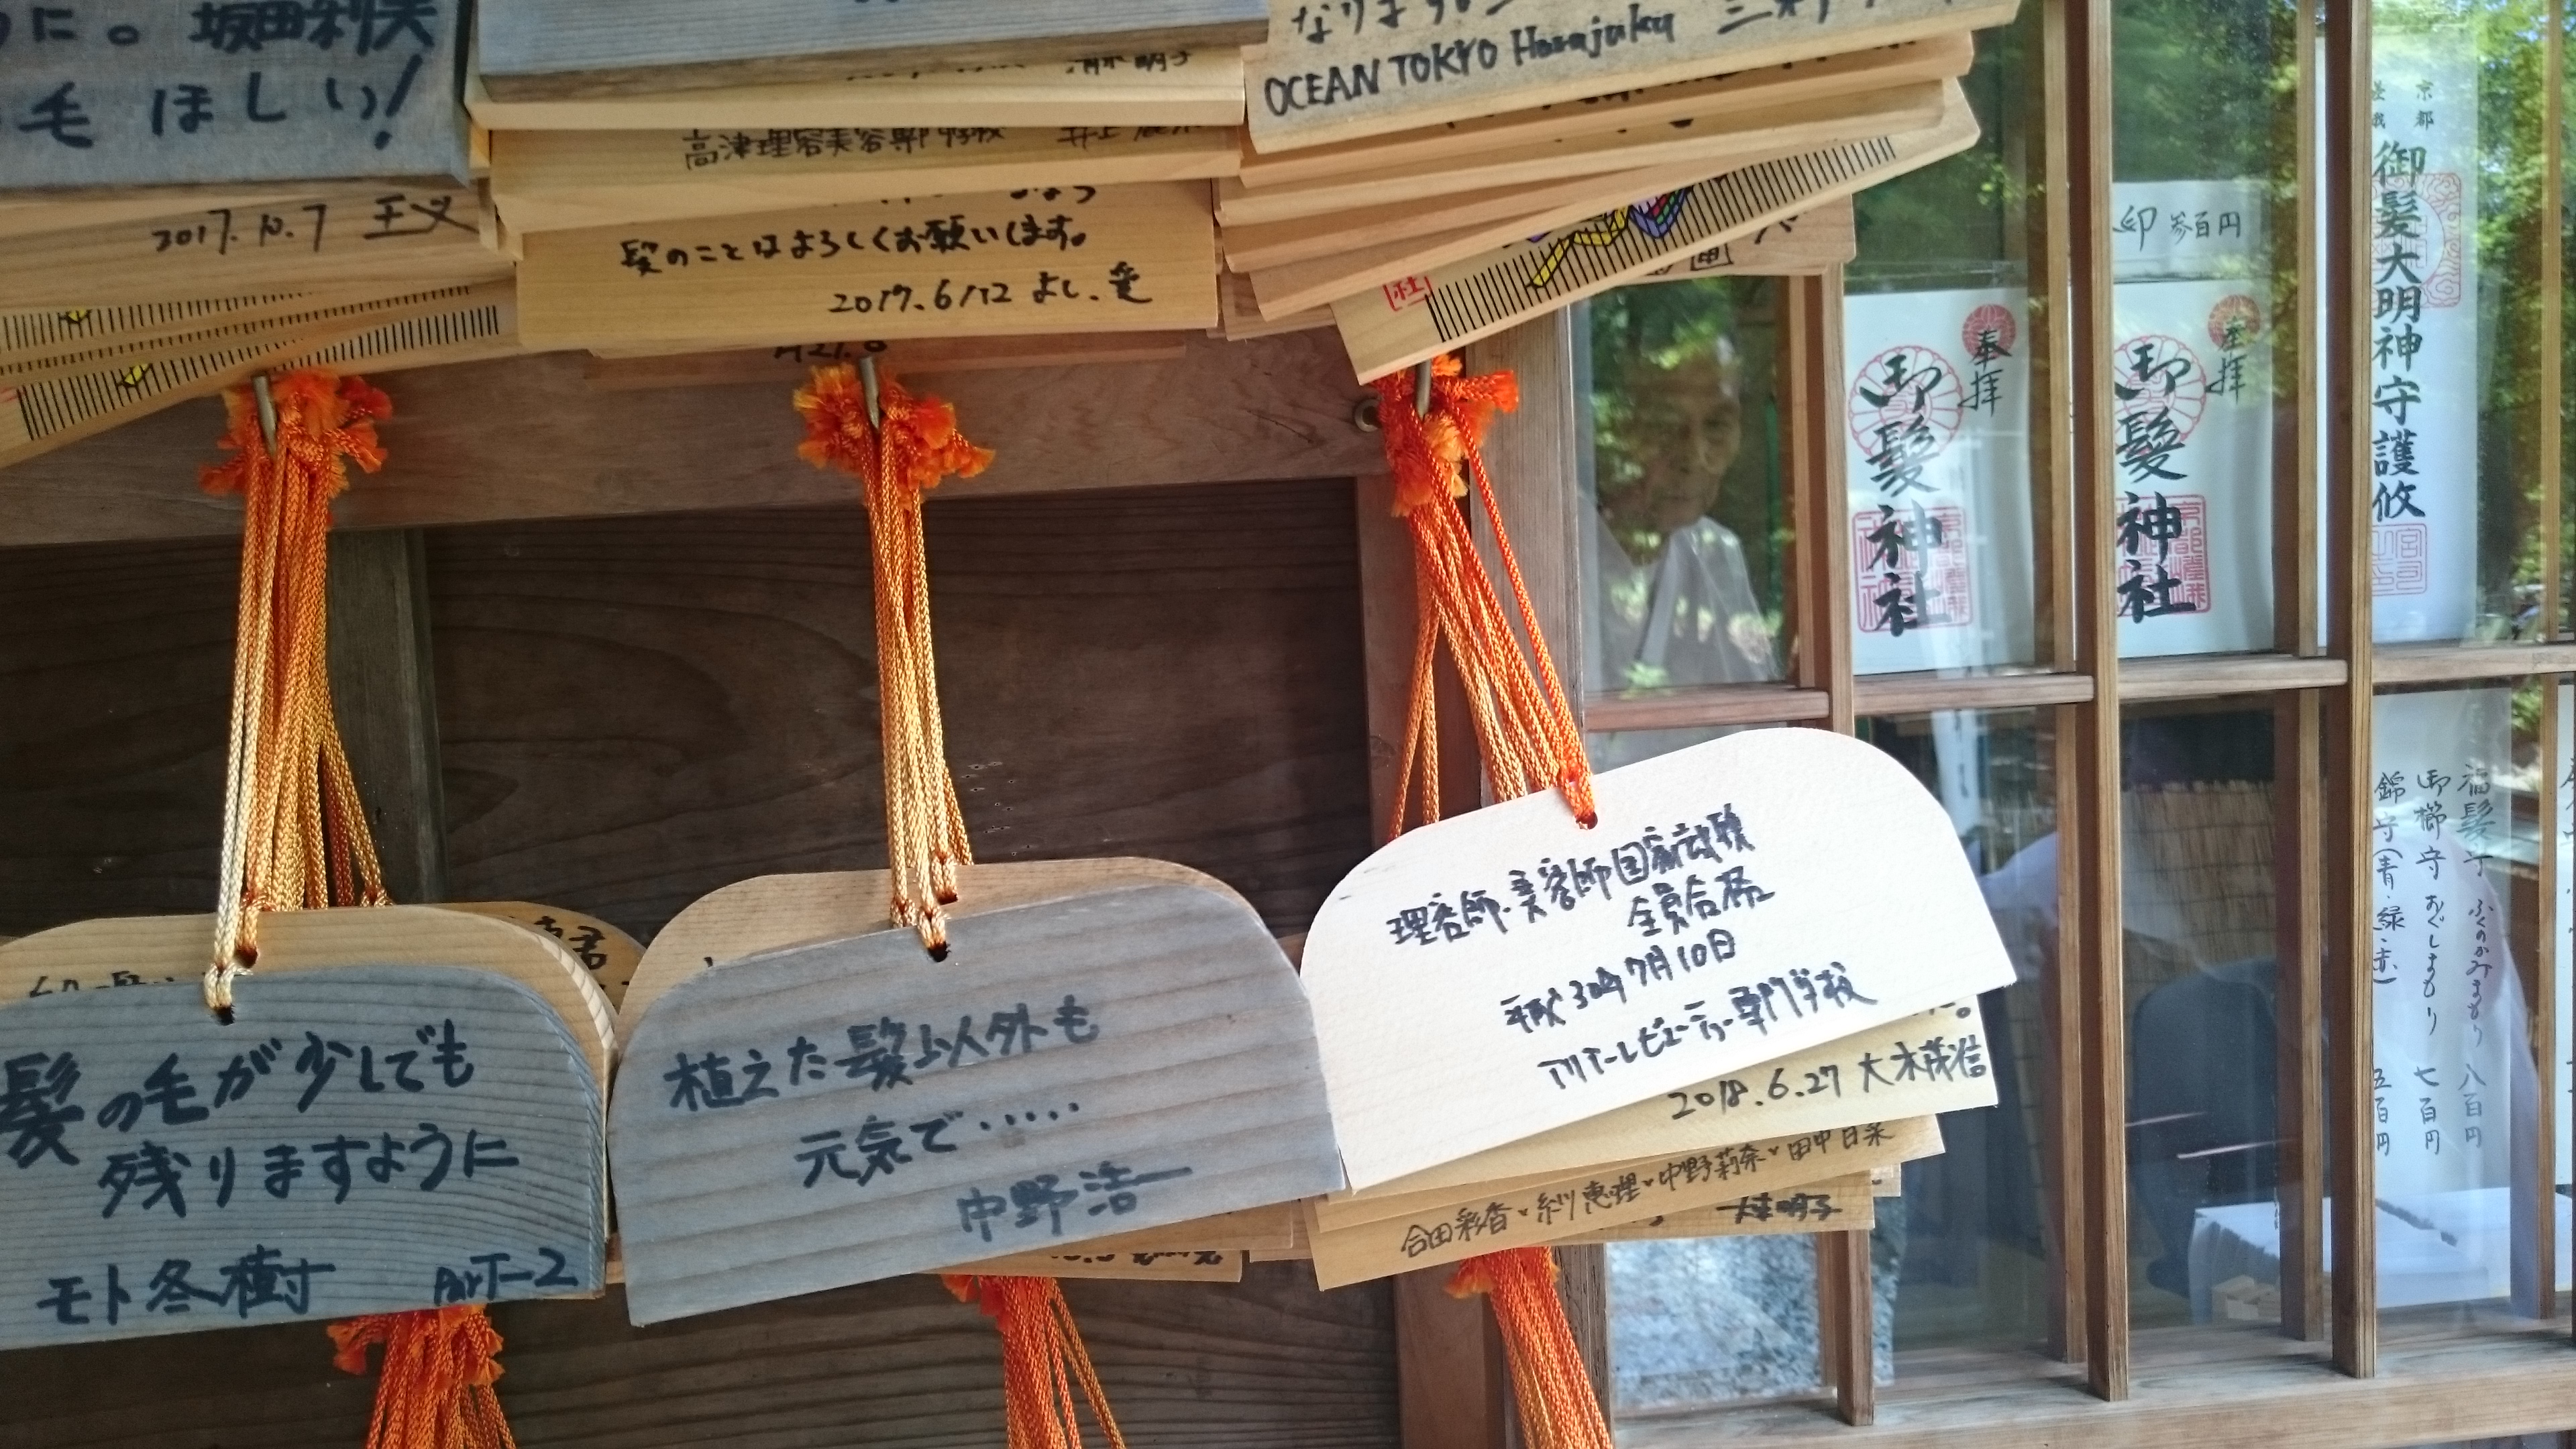 に。坂田利夫
毛ほしい!
2017.10.7
高津理容美容専門学校 井上
髪のことはよろしくお願いします。
2017.6/12 よし.愛
OCEAN TOKYO Harajuku
社
髪の毛が少しでも
残りますように
モト冬樹 ParT-2
植えた髪以外も
元気で・・・・・
中野浩一
理容師・美容師国家試験
全員合格
平成30年7月10日
アリアーレビューティー専門学校
2018.6.27 大木茂信
合田彩香・糸川恵理・中野莉奈・田中日菜
奉拝
御髪神社
印 参百円
奉拝
御髪神社
京都
御髪大明神守護攸
福髪守 ふくのかみまもり 八百円
御櫛守 おぐしまもり 七百円
錦守(青・緑・赤) 五百円